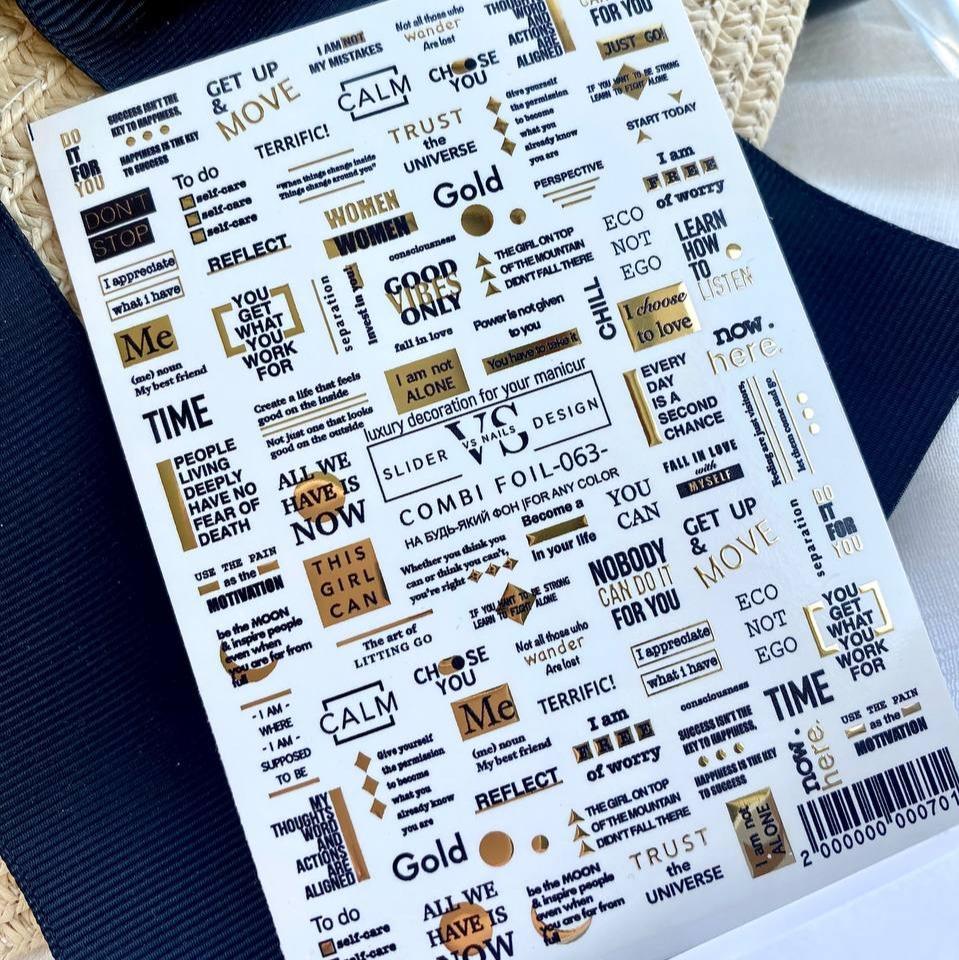 I AM NOT
MY MISTAKES
Not all those who
wander
Are lost
THOUGHTS
WORD
AND
ACTIONS
ARE
ALIGNED
FOR YOU
JUST GO!
DO
IT
FOR
YOU
SUCCESS ISN'T THE
KEY TO HAPPINESS.
HAPPINESS IN THE KEY
TO SUCCESS
GET UP
&
MOVE
CALM
CHOOSE
YOU
IF YOU WANT TO BE STRONG
LEARN TO FIGHT ALONE
TERRIFIC!
TRUST
the
UNIVERSE
Give yourself
the permission
to become
what you
already know
you are
START TODAY
DON'T
STOP
To do
self-care
self-care
self-care
"When things change inside
Things change around you"
Gold
PERSPECTIVE
I am
FREE
of worry
WOMEN
WOMEN
REFLECT
consciousness
THE GIRL ON TOP
OF THE MOUNTAIN
DIDN'T FALL THERE
ECO
NOT
EGO
LEARN
HOW
TO
LISTEN
I appreciate
what i have
YOU
GET
WHAT
YOU
WORK
FOR
separation
Invest in you
GOOD
VIBES
ONLY
fall in love
Power is not given
to you
You have to take it
CHILL
I choose
to love
now.
here.
Me
(me) noun
My best friend
Create a life that feels
good on the inside
Not just one that looks
good on the outside
I am not
ALONE
EVERY
DAY
IS A
SECOND
CHANCE
Feeling are just visitors,
let them come and go
TIME
luxury decoration for your manicur
SLIDER
VS
VS NAILS
DESIGN
COMBI FOIL-063-
НА БУДЬ-ЯКИЙ ФОН |FOR ANY COLOR
PEOPLE
LIVING
DEEPLY
HAVE NO
FEAR OF
DEATH
ALL WE
HAVE IS
NOW
FALL IN LOVE
with
MYSELF
DO
IT
FOR
YOU
USE THE PAIN
as the
MOTIVATION
THIS
GIRL
CAN
Whether you think you
can or think you can't,
you're right
Become a
in your life
YOU
CAN
GET UP
&
MOVE
separation
be the MOON
& inspire people
even when
you are far from
full
The art of
LITTING GO
IF YOU WANT TO BE STRONG
LEARN TO FIGHT ALONE
NOBODY
CAN DO IT
FOR YOU
ECO
NOT
EGO
YOU
GET
WHAT
YOU
WORK
FOR
- I AM -
WHERE
- I AM -
SUPPOSED
TO BE
CALM
CHOOSE
YOU
Not all those who
wander
Are lost
I appreciate
what i have
Me
(me) noun
My best friend
TERRIFIC!
I am
FREE
of worry
consciousness
TIME
SUCCESS ISN'T THE
KEY TO HAPPINESS.
HAPPINESS IN THE KEY
TO SUCCESS
now.
here.
USE THE PAIN
as the
MOTIVATION
Give yourself
the permission
to become
what you
already know
you are
REFLECT
MY
THOUGHTS
WORD
AND
ACTIONS
ARE
ALIGNED
Gold
THE GIRL ON TOP
OF THE MOUNTAIN
DIDN'T FALL THERE
TRUST
the
UNIVERSE
I am not
ALONE
2 000000 000701
To do
self-care
self-care
ALL WE
HAVE IS
NOW
be the MOON
& inspire people
even when
you are far from
full